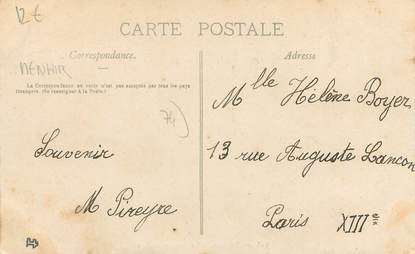 12€
CARTE POSTALE
Correspondance.
Adresse
MENHIR
La Correspondance au recto n'est pas acceptée par tous les pays
étrangers. (Se renseigner à la Poste.)
74
Souvenir
M Pireyre
Mlle Hélène Boyer
13 rue Auguste Lançon
Paris XIIIe